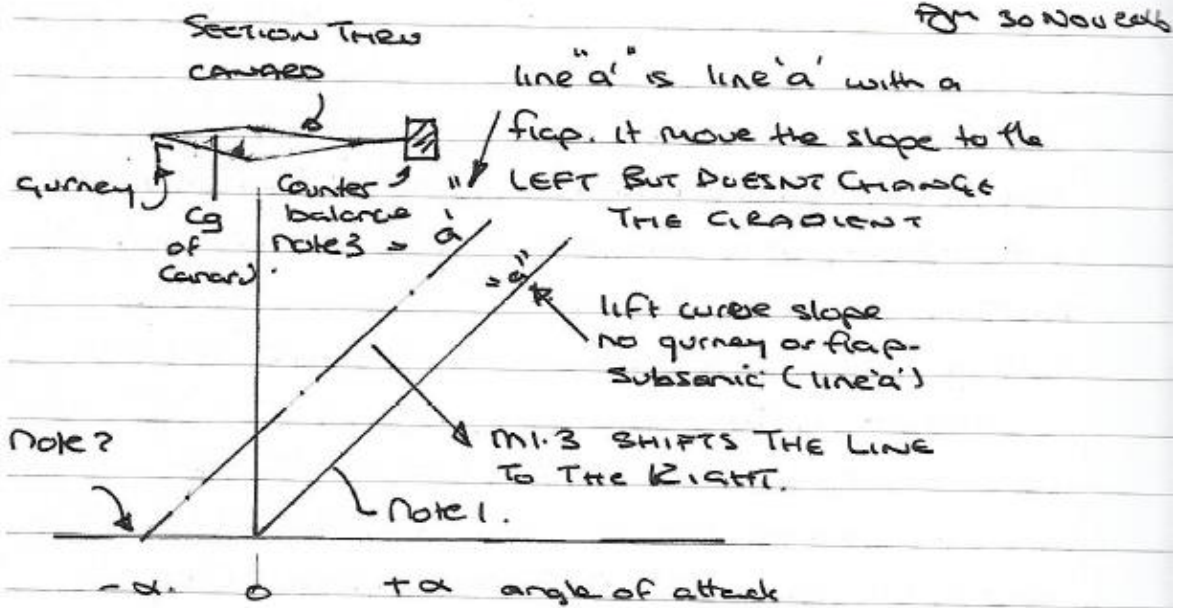 30 NOV
SECTION THRU
CANARD
line "a'" is line 'a' with a
flap. It move the slope to the
LEFT BUT DOESNT CHANGE
THE GRADIENT
gurney
Cg
of
Canard.
Counter
balance
note 3
a'
"a"
lift curve slope
no gurney or flap.
Subsonic (line 'a')
Note?
M1.3 SHIFTS THE LINE
TO THE RIGHT.
Note 1.
-α. 0 +α angle of attack